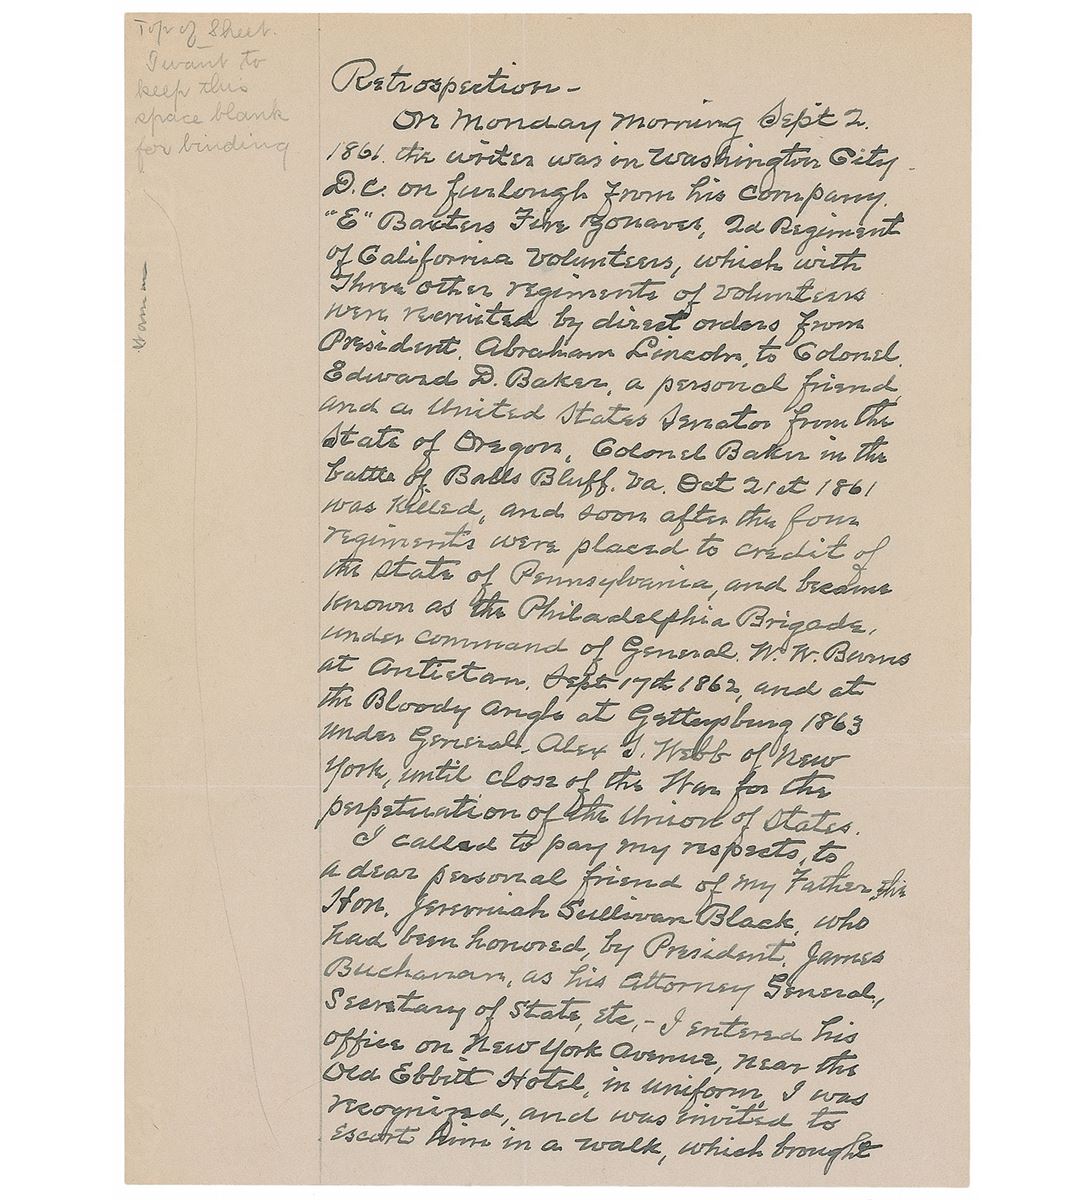 Top of Sheet.
I want to
keep this
space blank
for binding
Retrospection -
On Monday Morning Sept 2.
1861. the writer was in Washington City
D.C. on furlough from his company.
"E" Baxters Fire Zouaves, 2d Regiment
of California Volunteers, which with
Three other regiments of volunteers
were recruited by direct orders from
President. Abraham Lincoln, to Colonel
Edward D. Baker, a personal friend
and a United States Senator from the
State of Oregon, Colonel Baker in the
battle of Balls Bluff. Va. Oct 21st 1861
was killed, and soon after the four
regiments were placed to credit of
the State of Pennsylvania, and became
known as the Philadelphia Brigade,
under command of General. W. W. Burns
at Antietam. Sept 17th 1862, and at
the Bloody Angle at Gettysburg 1863
under General. Alex S. Webb of New
York, until close of the War for the
perpetuation of the Union of States.
I called to pay my respects, to
a dear personal friend of my Father, the
Hon. Jeremiah Sullivan Black, who
had been honored, by President. James
Buchanan, as his Attorney General,,
Secretary of State, etc, - I entered his
office on New York Avenue, near the
Old Ebbitt Hotel, in uniform, I was
recognized, and was invited to
escort him in a walk, which brought